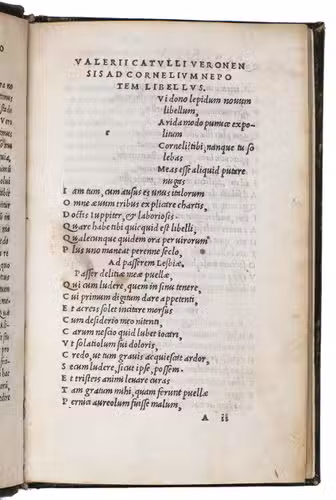 VALERII CATVLLI VERONEN
SIS AD CORNELIVM NEPO
TEM LIBELLVS.
Vi dono lepidum nouum
libellum,
Arida modo pumice expo
litum
c
Corneli tibi; nanque tu so
lebas
Meas esse aliquid putare
nugas
Iam tum, cum ausus es unus italorum
Omne æuum tribus explicare chartis,
Doctis Iuppiter, & laboriosis.
Quare habe tibi quicquid est libelli,
Qualecunque quidem ora per uirorum
Plus uno maneat perenne seclo,
Ad passerem Lesbiæ.
Passer delitiæ meæ puellæ,
Qui cum ludere, quem in sinu tenere,
Cui primum digitum dare appetenti,
Et acreis solet incitare morsus
Cum desiderio meo nitenti,
Carum nescio quid lubet iocari,
Vt solatiolum sui doloris,
Credo, ut tum grauis acquiescat ardor,
Secum ludere, sicut ipse, possem.
Et tristeis animi leuare curas
Tam gratum mihi, quam ferunt puellæ
Pernici aureolum fuisse malum,
A ii